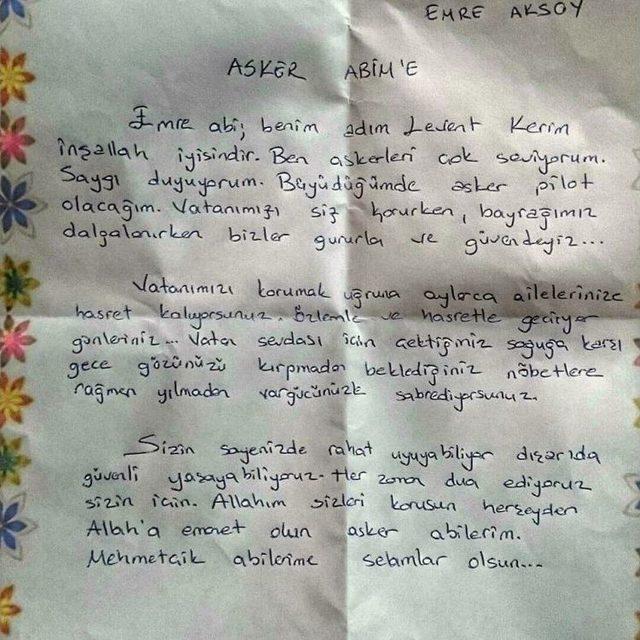 EMRE AKSOY
ASKER ABİM'E
Emre abi; benim adım Levent Kerim
inşallah iyisindir. Ben askerleri çok seviyorum.
Saygı duyuyorum. Büyüdüğümde asker pilot
olacağım. Vatanımızı siz korurken, bayrağımız
dalgalanırken bizler gururla ve güvendeyiz...
Vatanımızı korumak uğruna aylarca ailelerinize
hasret kalıyorsunuz. Özlemle ve hasretle geçiyor
günleriniz... Vatan sevdası için çektiğiniz soğuğa karşı
gece gözünüzü kırpmadan beklediğiniz nöbetlere
rağmen yılmadan vargücünüzle sabrediyorsunuz.
Sizin sayenizde rahat uyuyabiliyor dışarıda
güvenli yaşayabiliyoruz. Her zaman dua ediyoruz
sizin için. Allahım sizleri korusun herşeyden
Allah'a emanet olun asker abilerim.
Mehmetçik abilerime selamlar olsun...